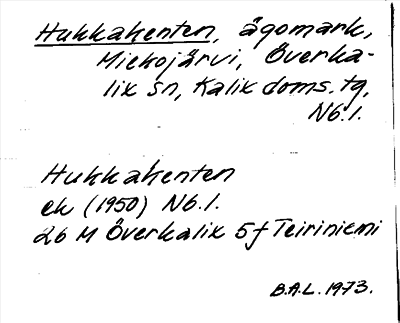 Hukkakenten, ägomark,
Miekojärvi, Överka-
lix sn, Kalix doms. tg,
Nb.l.
Hukkakenten
ek (1950) Nb.l.
26 M Överkalix 5f Teiriniemi
B.A.L. 1973.